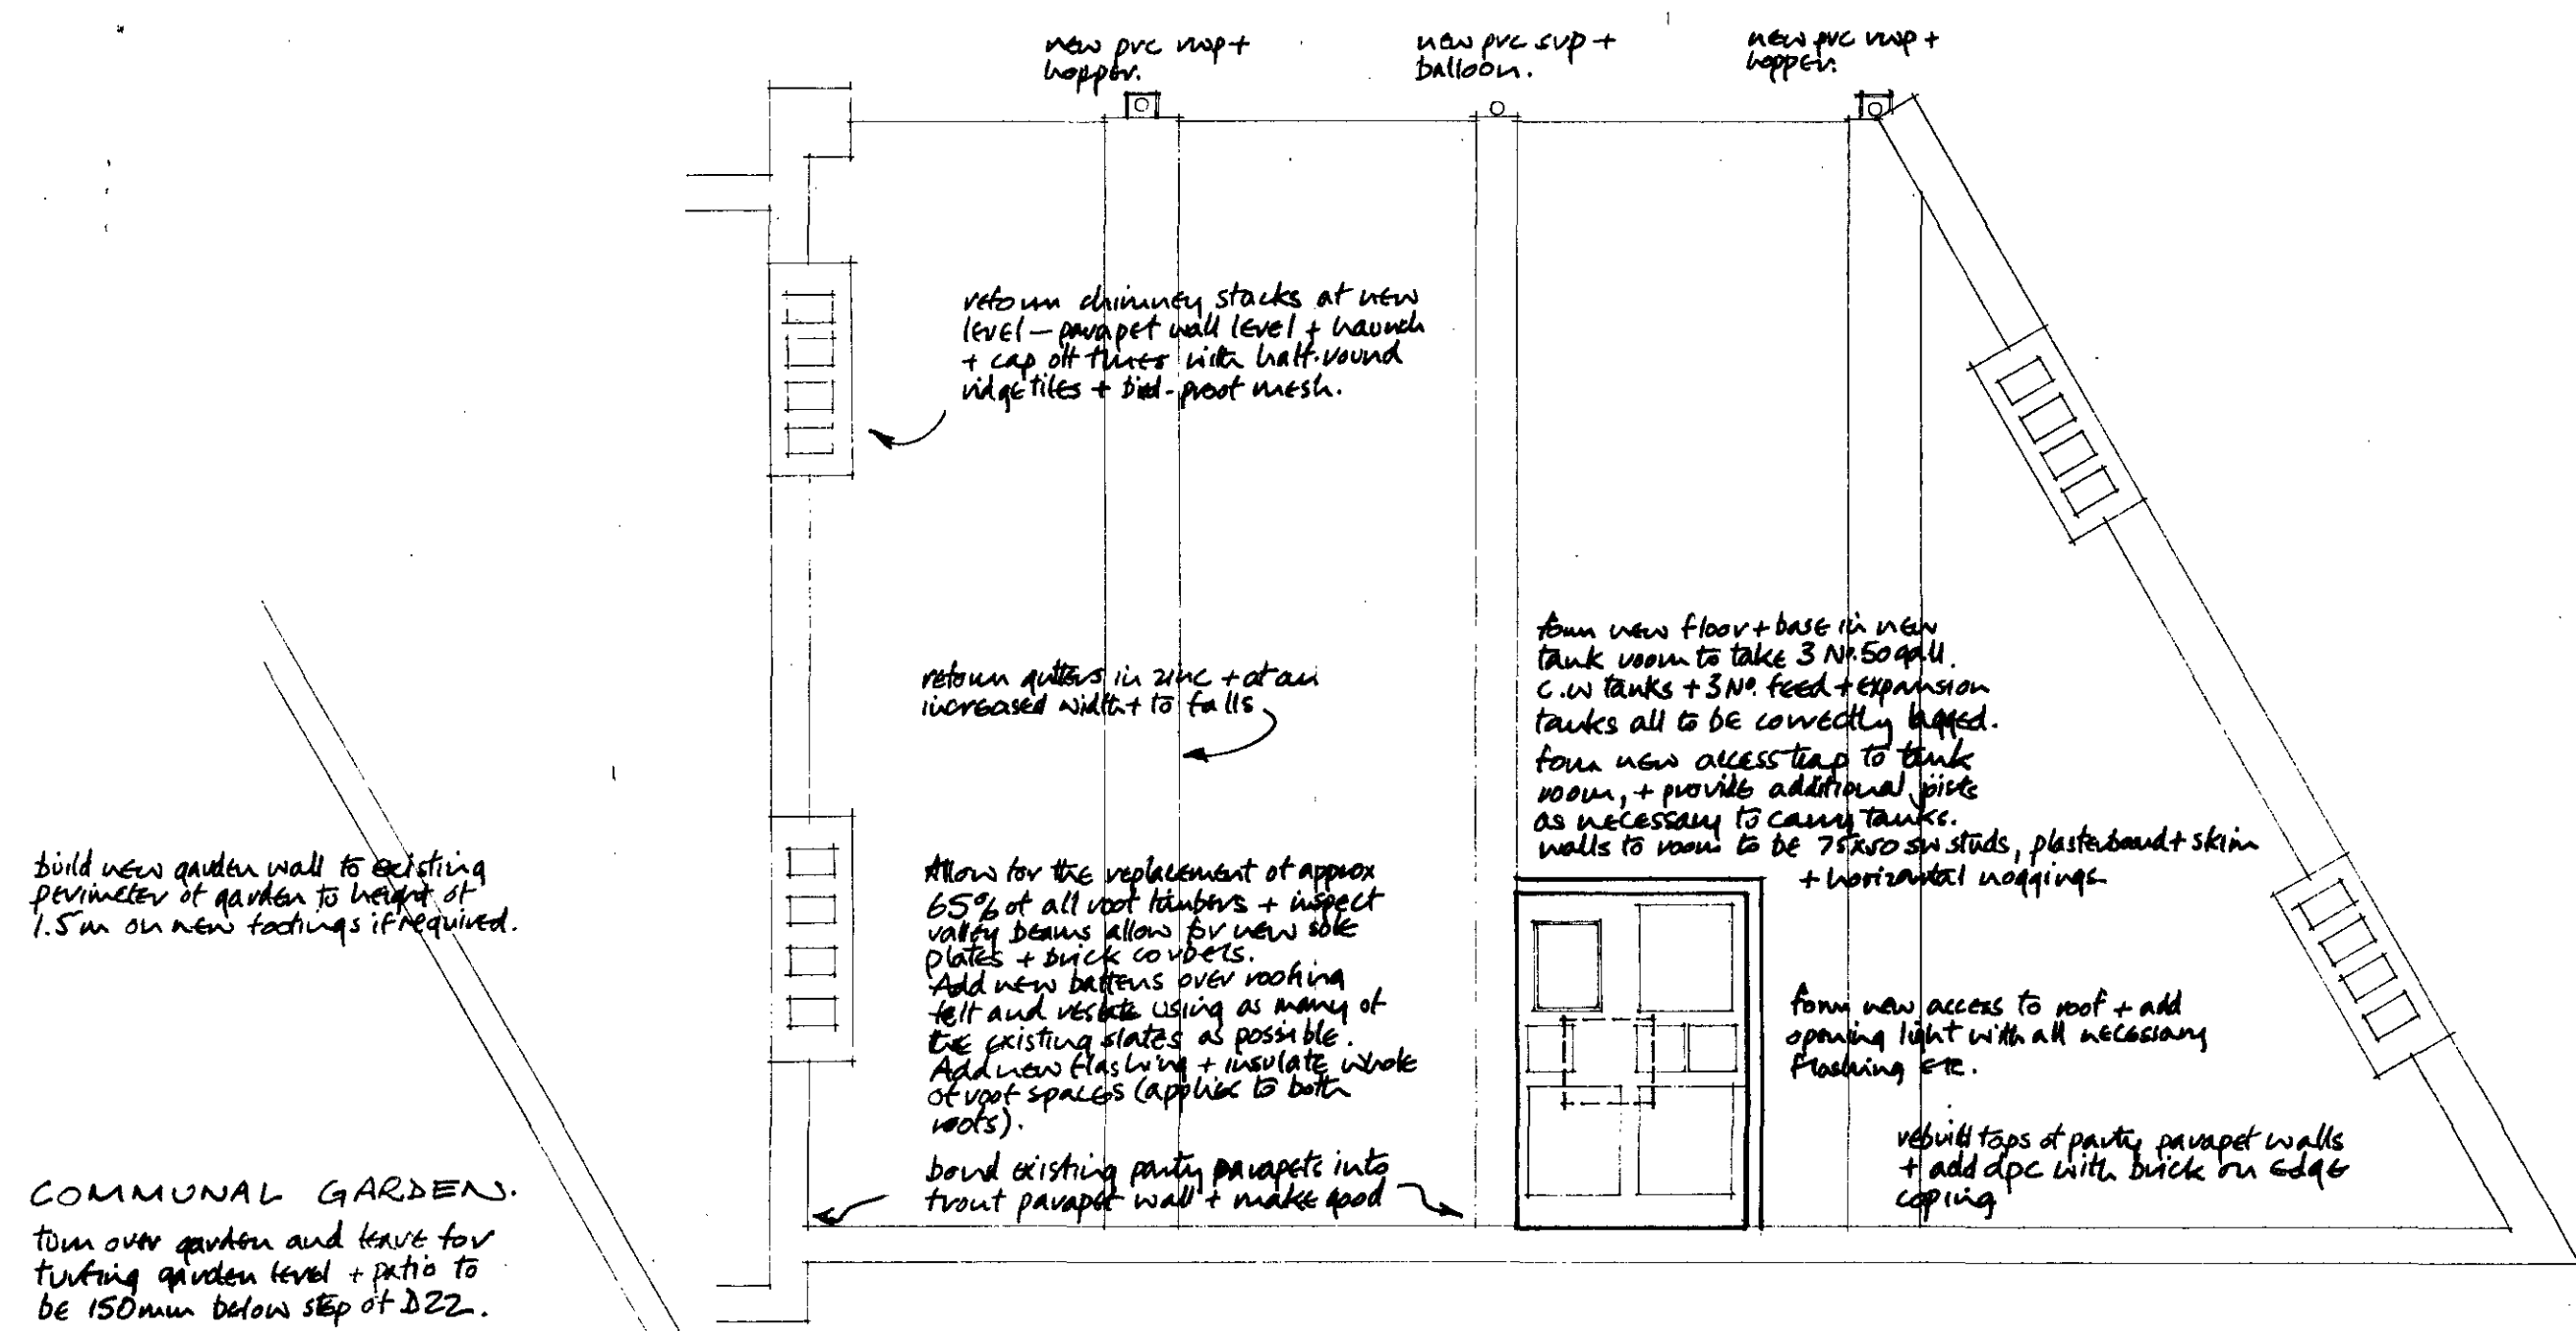 new pvc rwp +
hopper.
new pvc svp +
balloon.
new pvc rwp +
hopper.
reform chimney stacks at new
level – parapet wall level + haunch
+ cap off flues with half-round
ridge tiles + bird-proof mesh.
reform gutters in zinc + at an
increased width + to falls
form new floor + base in new
tank room to take 3 No. 50 gall.
c.w tanks + 3 No. feed + expansion
tanks all to be correctly lagged.
form new access trap to tank
room, + provide additional joists
as necessary to carry tanks.
walls to room to be 75x50 sw studs, plasterboard + skim
+ horizontal noggings
build new garden wall to existing
perimeter of garden to height of
1.5m on new footings if required.
Allow for the replacement of approx
65% of all roof timbers + inspect
valley beams allow for new sole
plates + brick corbels.
Add new battens over roofing
felt and reslate using as many of
the existing slates as possible.
Add new flashing + insulate whole
of roof spaces (applies to both
roofs).
form new access to roof + add
opening light with all necessary
flashing etc.
bond existing party parapets into
front parapet wall + make good
rebuild tops of party parapet walls
+ add dpc with brick on edge
coping
COMMUNAL GARDEN.
turn over garden and leave for
turfing garden level + patio to
be 150mm below step of D22.